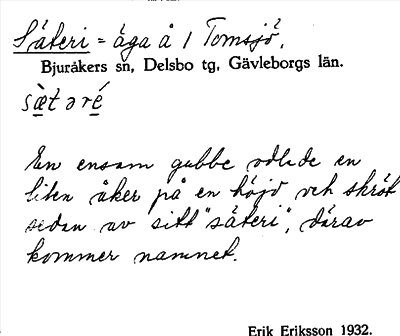 Säteri = äga å / Tomsjö.
Bjuråkers sn, Delsbo tg, Gävleborgs län.
sæ̀təré
En ensam gubbe odlade en
liten åker på en höjd och skröt
sedan av sitt "säteri", därav
kommer namnet.
Erik Eriksson 1932.